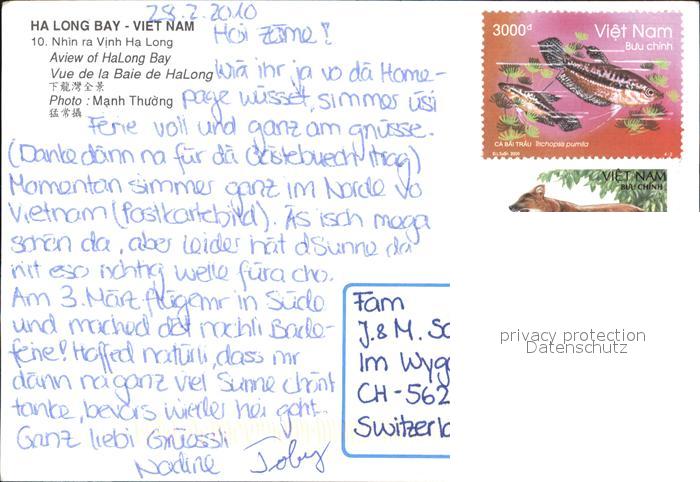 28.2.2010
HA LONG BAY - VIET NAM
10. Nhìn ra Vịnh Hạ Long
Aview of HaLong Bay
Vue de la Baie de HaLong
下龍灣全景
Photo : Mạnh Thường
猛常攝
Hoi zäme!
Wiä ihr ja vo dä Home-
page wüsset, simmer üsi
Ferie voll und ganz am gnüsse.
(Danke dänn na für dä Gästebuech itrag)
Momentan simmer ganz im Norde vo
Vietnam (Postkartebild). Äs isch mega
schön da, aber leider hät d'Sunne da
nit eso richtig welle füra cho.
Am 3. März flügemr in Süde
und mached det nachli Bade-
ferie! Hoffed natürli, dass mr
dänn na ganz viel Sunne chönt
tanke, bevors wieder hei goht.
Ganz liebi Grüessli
Nadine Toby
3000đ
Việt Nam
Bưu chính
CÁ BÃI TRẦU Trichopsis pumila
VIỆT NAM
BƯU CHÍNH
Fam
J. & M. Sc
Im Wyg
CH-562
Switzerla
privacy protection
Datenschutz